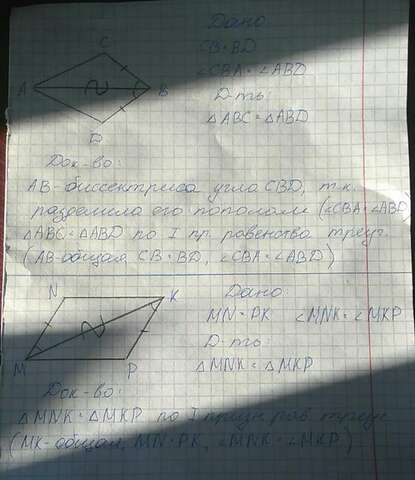 Дано
C
CB = BD
∠CBA = ∠ABD
A
B
Д-ть:
△ABC = △ABD
D
Док-во:
AB - биссектриса угла CBD, т.к.
разделила его пополам (∠CBA = ∠ABD
△ABC = △ABD по I пр. равенства треуг.
(AB - общая, CB = BD, ∠CBA = ∠ABD)
N
K
Дано:
MN = PK ∠MNK = ∠MKP
Д-ть:
△MNK = △MKP
M
P
Док-во:
△MNK = △MKP по I призн. рав. треуг
(MK - общая, MN = PK, ∠MNK = ∠MKP)